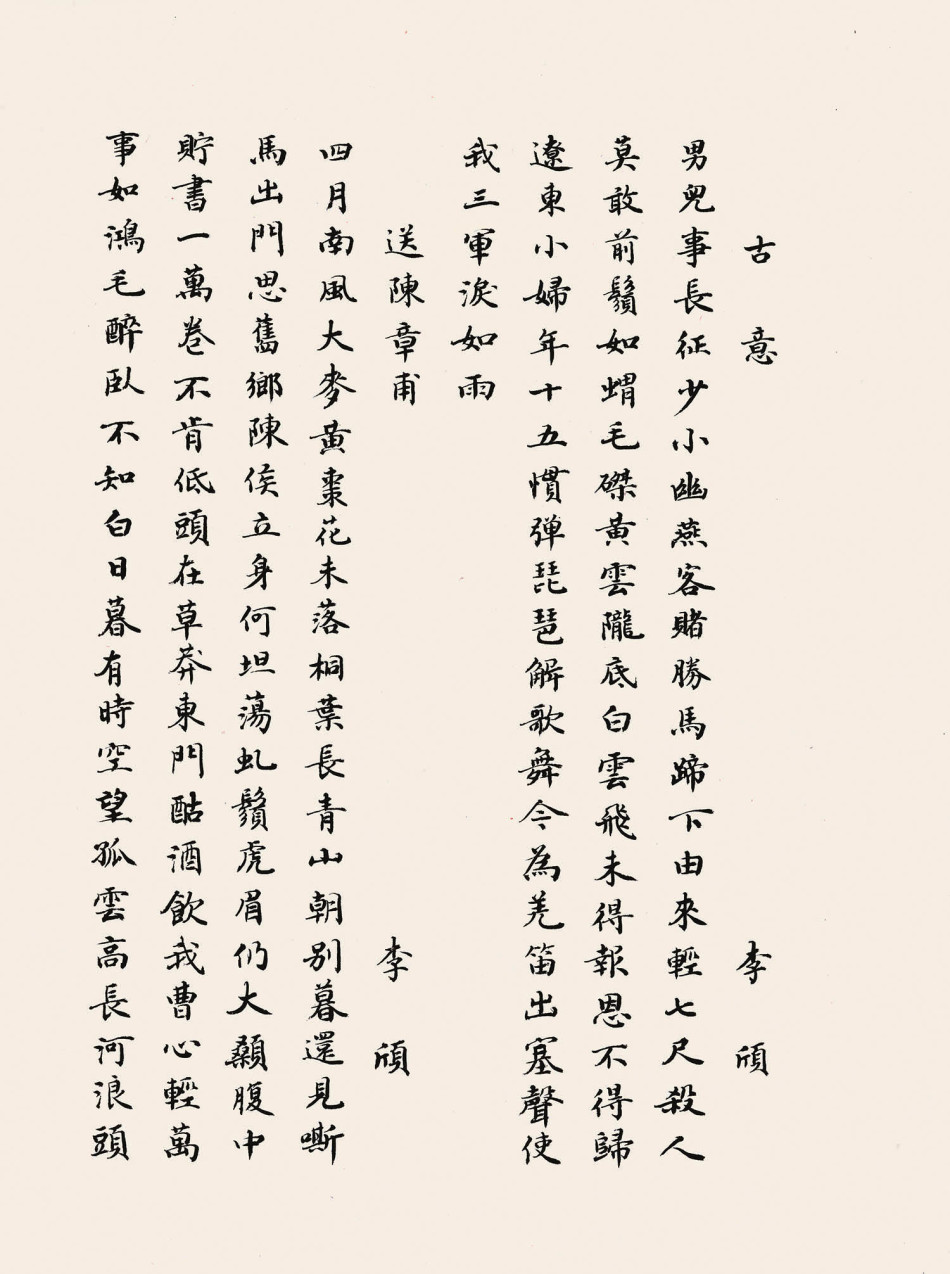 古意　李頎
男兒事長征少小幽燕客賭勝馬蹄下由來輕七尺殺人
莫敢前鬚如蝟毛磔黃雲隴底白雲飛未得報恩不得歸
遼東小婦年十五慣彈琵琶解歌舞今為羌笛出塞聲使
我三軍淚如雨
送陳章甫　李頎
四月南風大麥黃棗花未落桐葉長青山朝別暮還見嘶
馬出門思舊鄉陳侯立身何坦蕩虬鬚虎眉仍大顙腹中
貯書一萬卷不肯低頭在草莽東門酤酒飲我曹心輕萬
事如鴻毛醉臥不知白日暮有時空望孤雲高長河浪頭